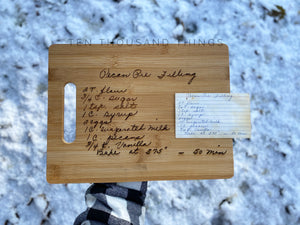 TEN THOUSAND THINGS
Pecan Pie Filling
2 T flour
3/4 C. Sugar
1 tsp. salt
1 C. Syrup
2 eggs
1 C Evaporated Milk
1 C. Pecans
3/4 t. Vanilla
Bake at 375° = 50 min
Pecan Pie Filling